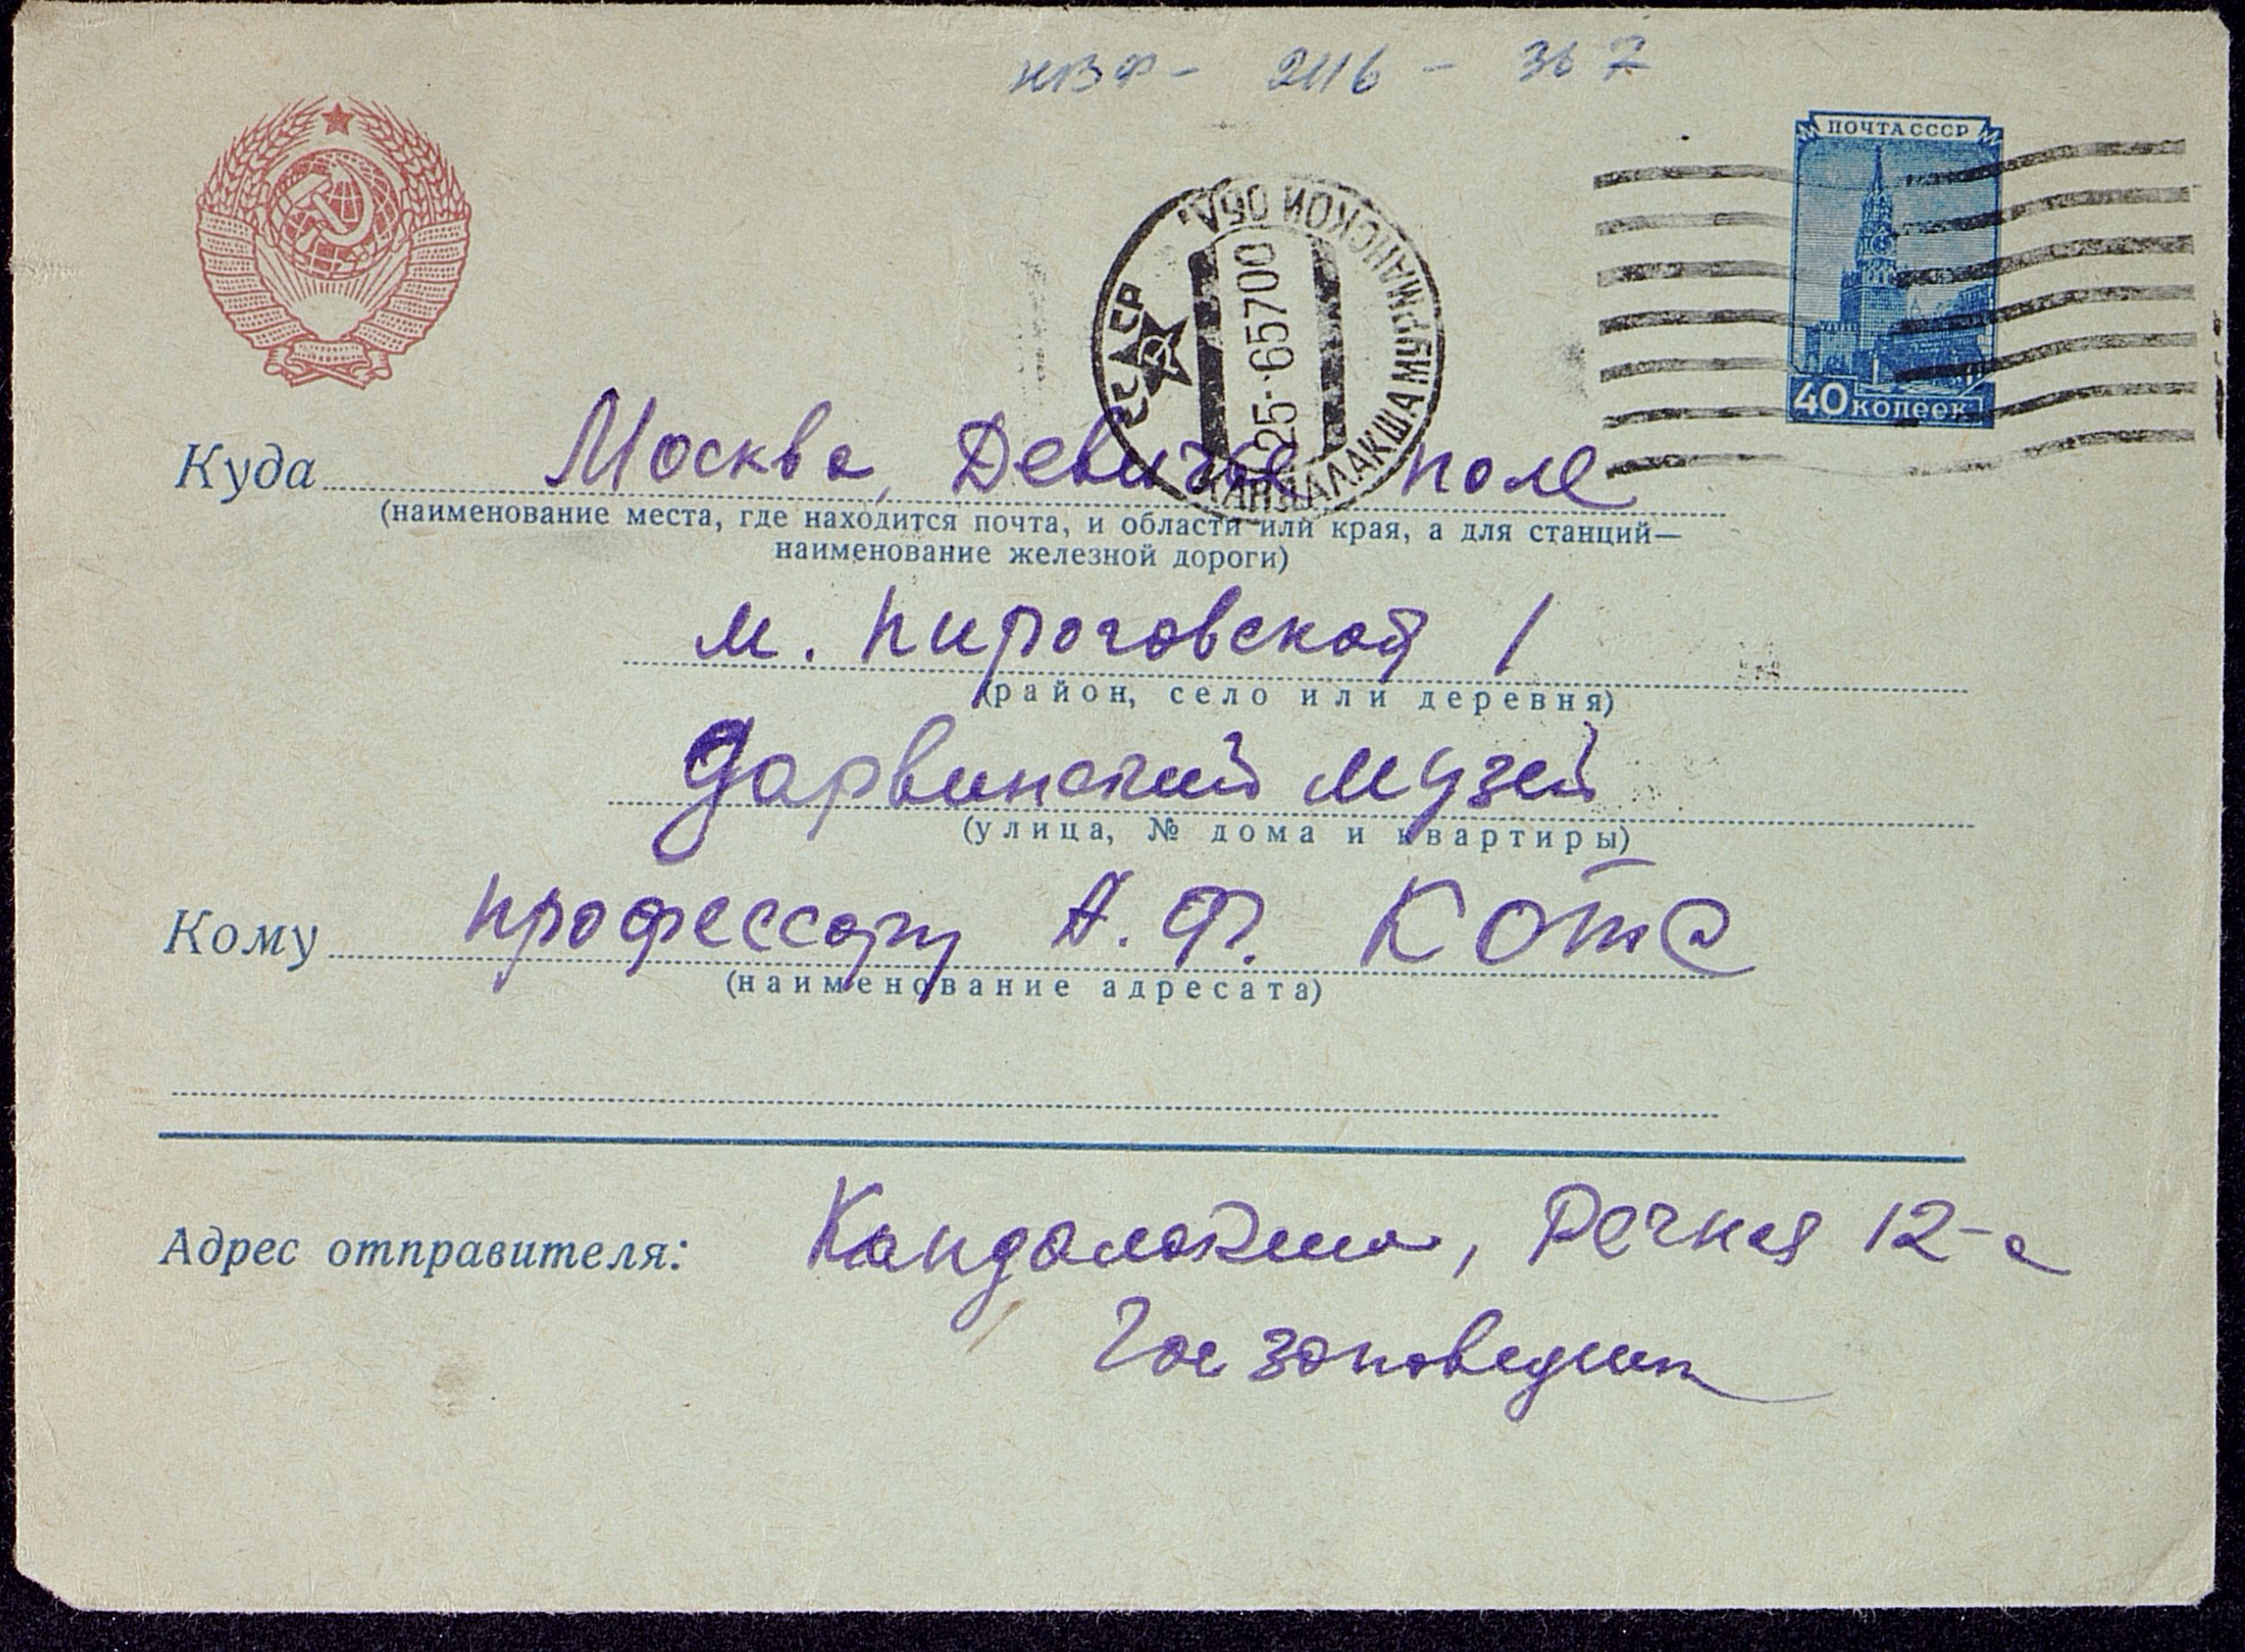 НВФ - 2116 - 367
ПОЧТА СССР
40 копеек
СССР
КАНДАЛАКША МУРМАНСКОЙ ОБЛ.
25-65700
Куда Москва, Девичье поле
(наименование места, где находится почта, и области или края, а для станций—
наименование железной дороги)
м. Пироговской 1
(район, село или деревня)
Дарвинский музей
(улица, № дома и квартиры)
Кому профессору А. Ф. Котс
(наименование адресата)
Адрес отправителя: Кандалакша, Речная 12-а
Гос заповедник